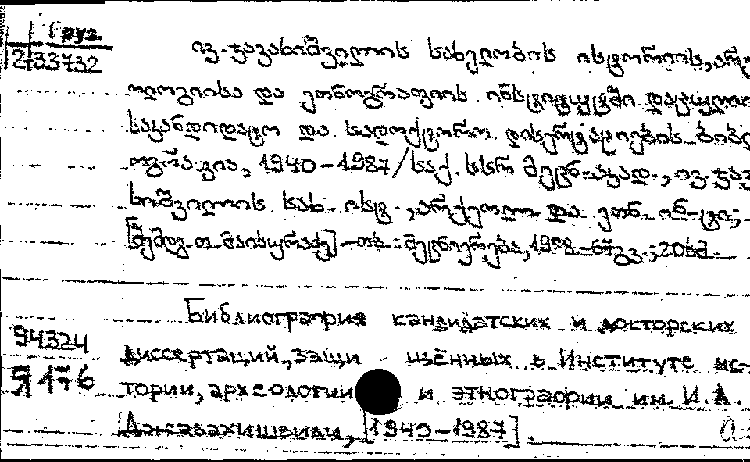 Груз.
2-33732
ივ. ჯავახიშვილის სახელობის ისტორიის, არქე
ოლოგიისა და ეთნოგრაფიის ინსტიტუტში დაცული
საკანდიდატო და სადოქტორო დისერტაციების ბიბლ
იოგრაფია, 1940-1987/საქ. სსრ მეცნ. აკად., ივ. ჯავა
ხიშვილის სახ. ისტ., არქეოლ. და ეთნ. ინ-ტი;
[შემდგ. თ.
თბ.: მეცნიერება, 1988. -67გვ.; 20სმ.
Библиография кандидатских и докторских
94324
диссертаций, защищённых в Институте ис-
Я176
тории, археологии и этнографии им. И.А.
Джавахишвили, [1940-1987].